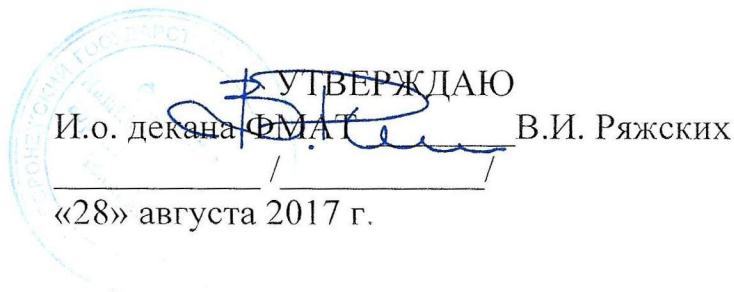 УТВЕРЖДАЮ
И.о. декана ФМАТ ______В.И. Ряжских
____________ /____________/
«28» августа 2017 г.